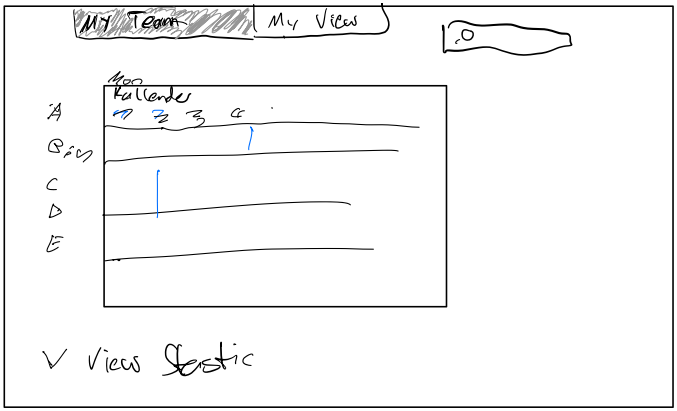 My Team
My View
Mon
Kallender
1 2 3 4
A
C
D
E
V View Stastic